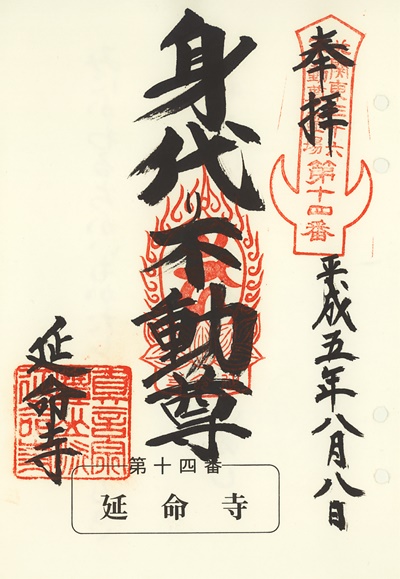 奉拝
第十四番
平成五年八月八日
身代り不動尊
延命寺
第十四番
延命寺